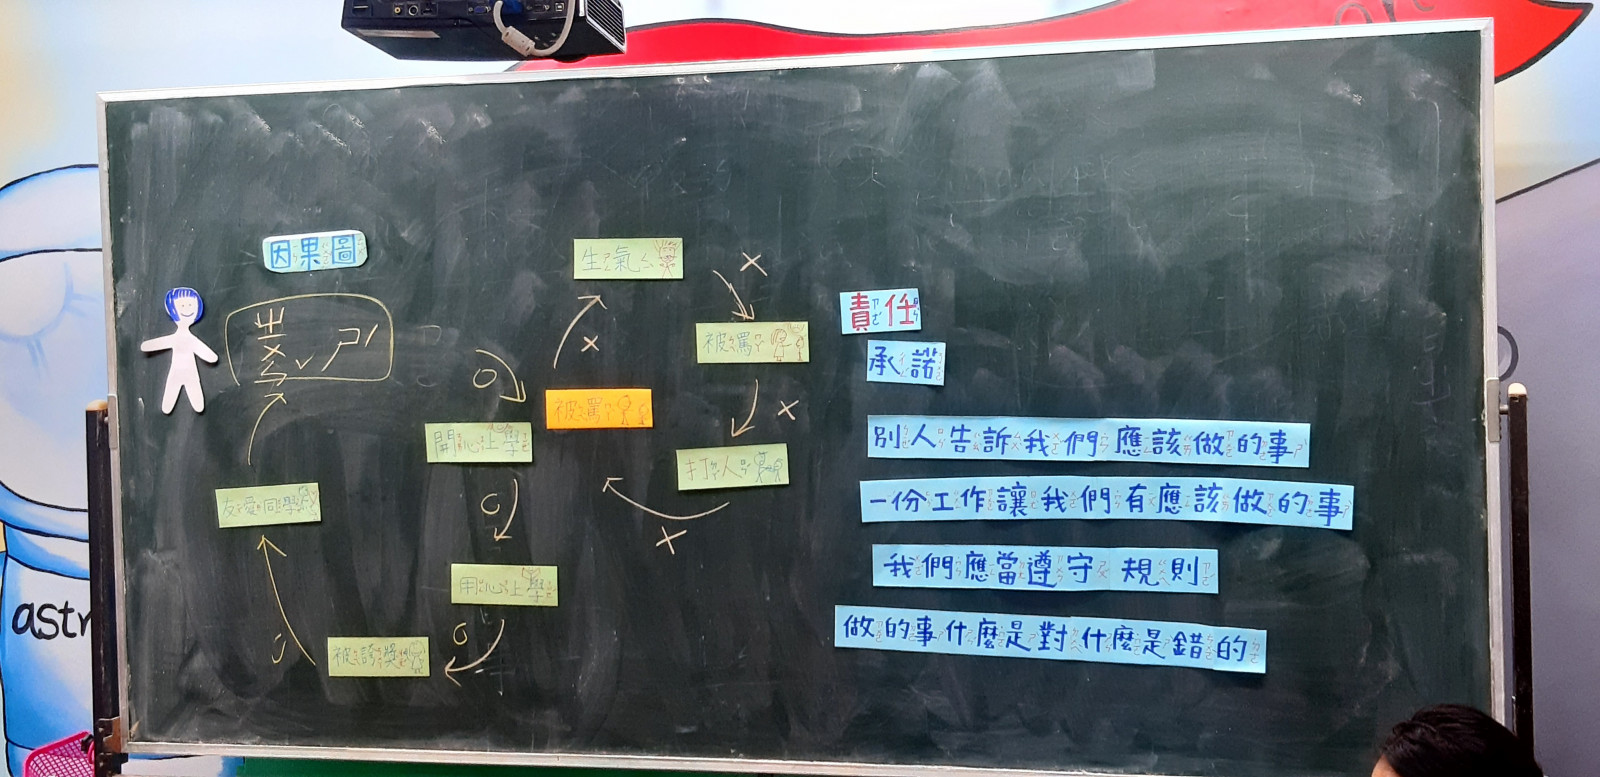 因果圖
生氣
被罵
被罵
打人
開心上學
用心上學
被誇獎
友愛同學
責任
承諾
別人告訴我們應該做的事
一份工作讓我們有應該做的事
我們應當遵守規則
做的事什麼是對什麼是錯的
astr